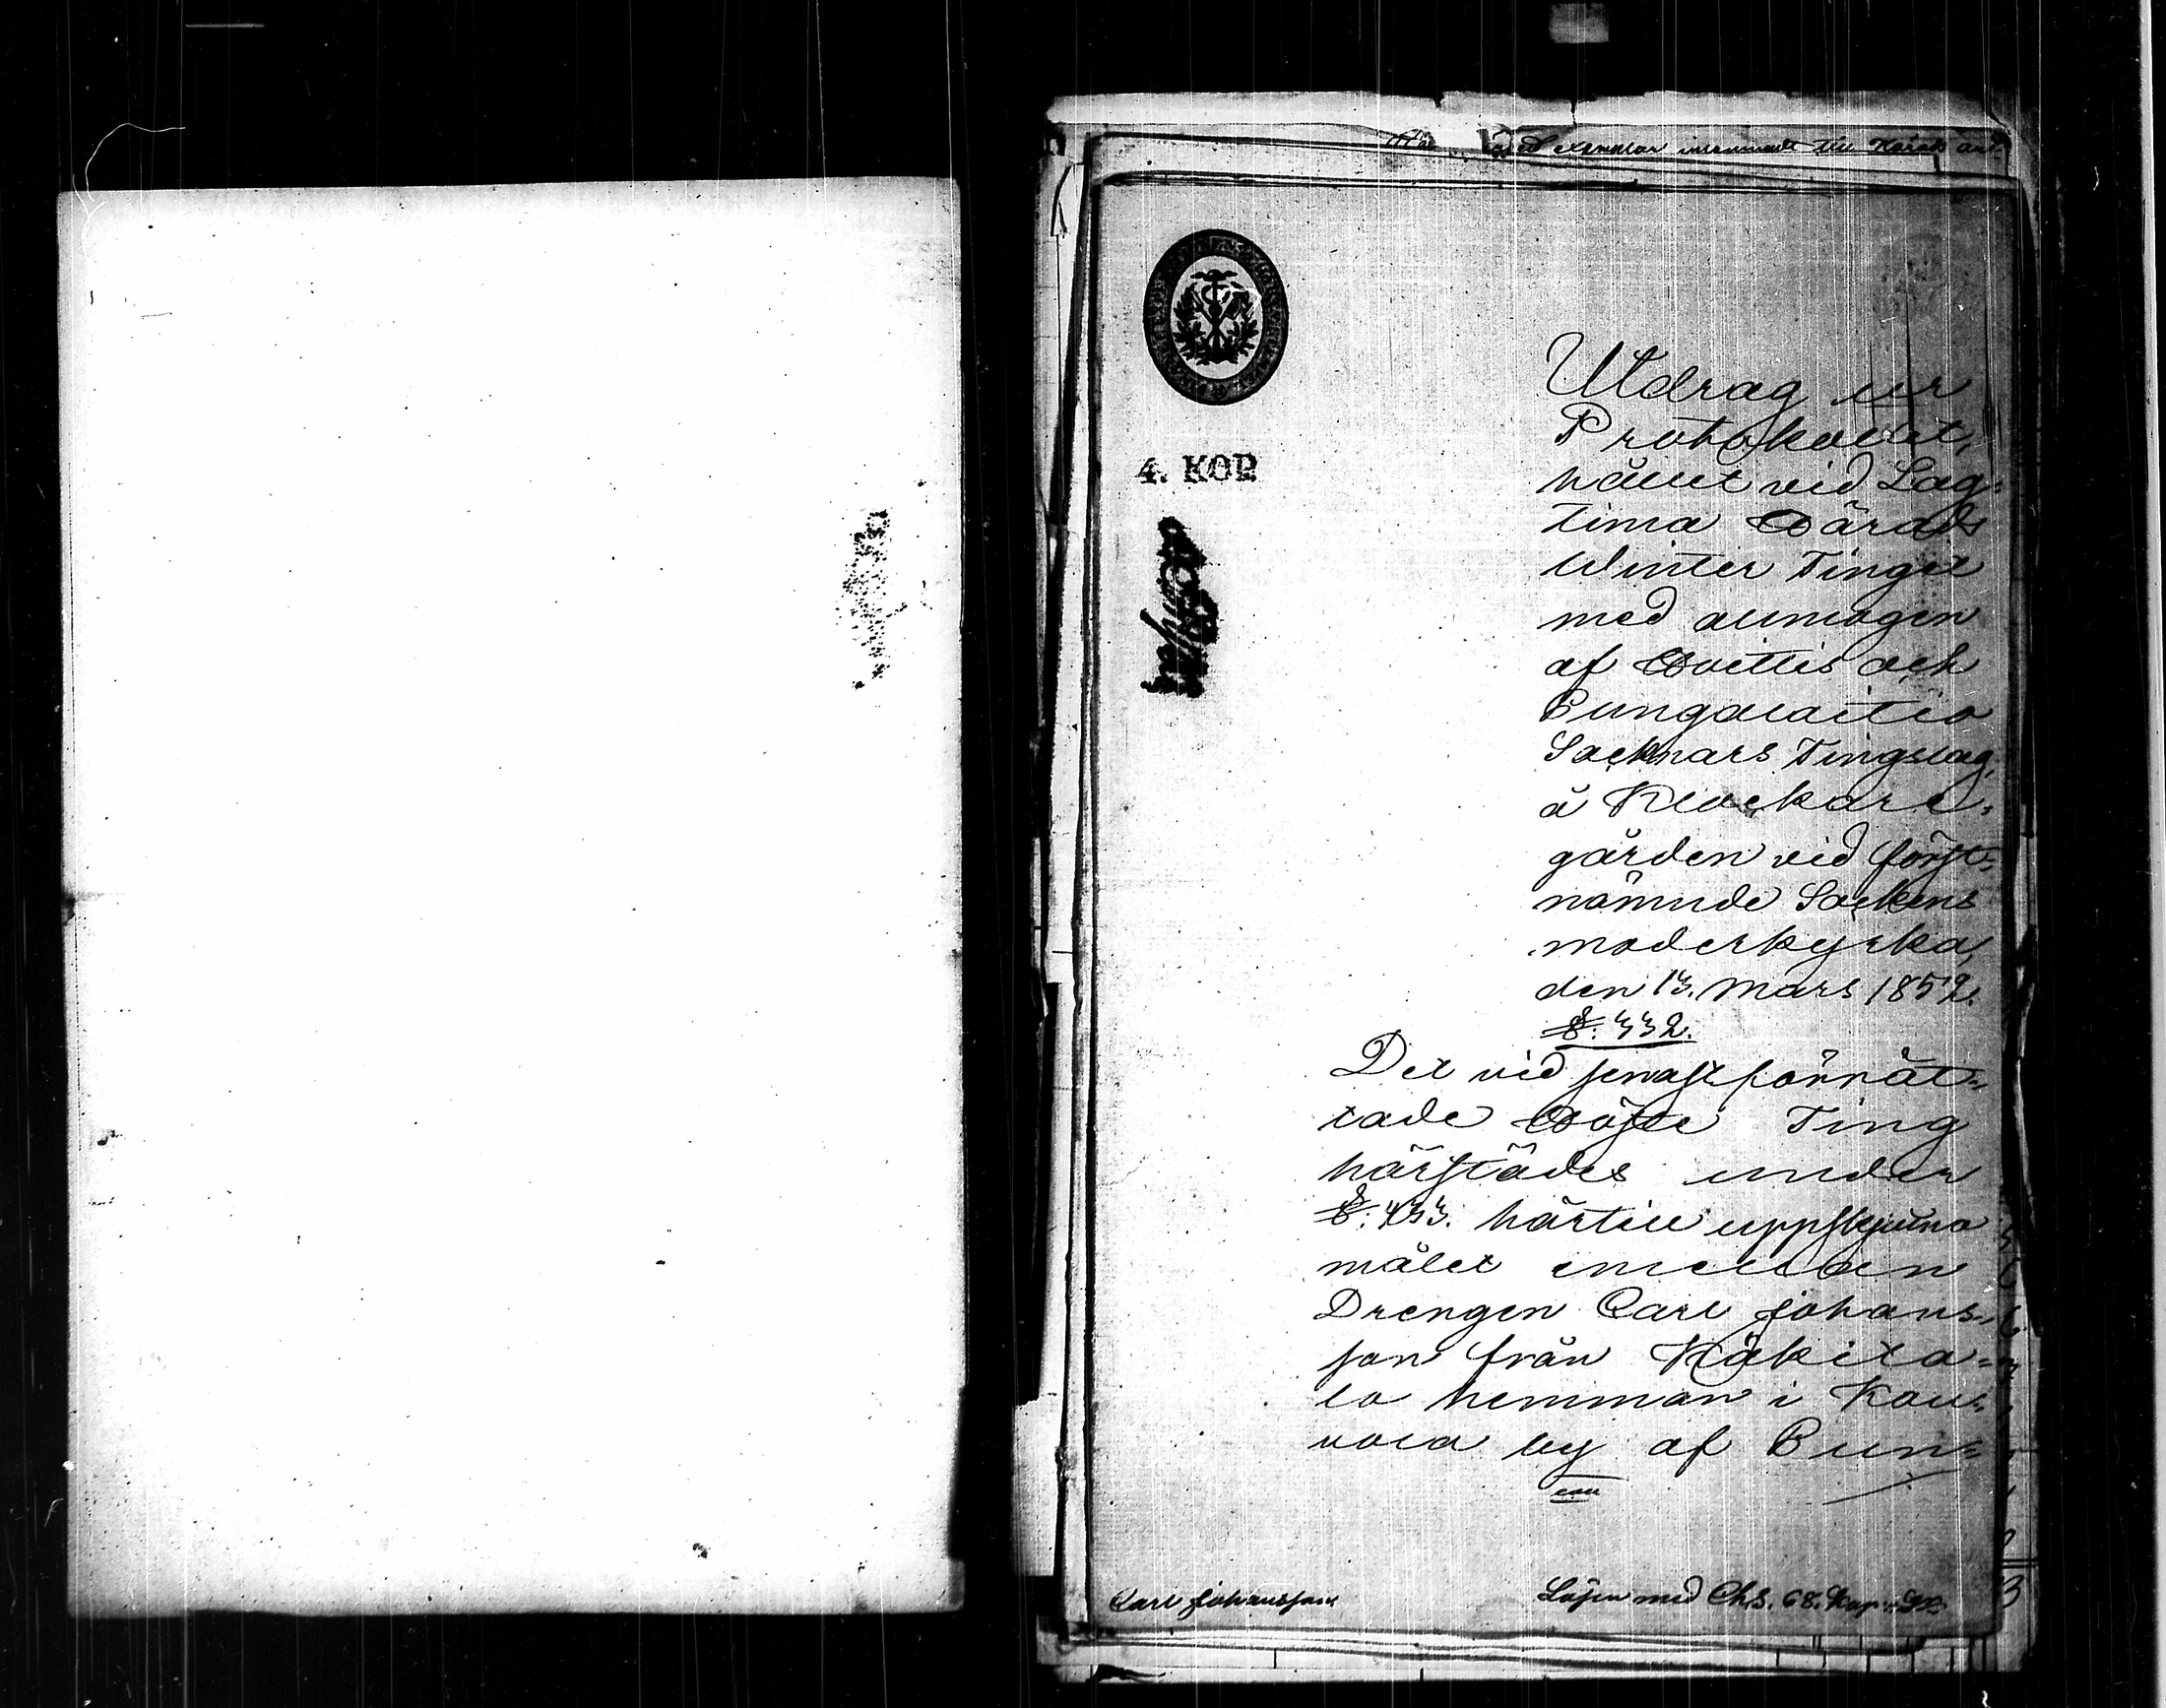 exemplar insemnadt till Härads
4. KOP.
Utdrag ur
Protokollet,
hållet vid Lag-
tima Härads
Winter Tinget
med allmogen
af Hvittis och
Pungalaitio
Socknars Tingslag,
å Klockare-
gården vid först-
nämnde Sockens
moderkyrka,
den 13. Mars 1852.
§: 332.
Det vid senast förrät-
tade Höste Ting
härstädes under
§: 433. härtill uppskjutna
målet emellan
Drengen Carl Johans-
son från Käkita-
lo hemman i Kau-
vola by af Pun-
Carl Johansson
Lösen med Ch.S. 68. Kop. Sr.